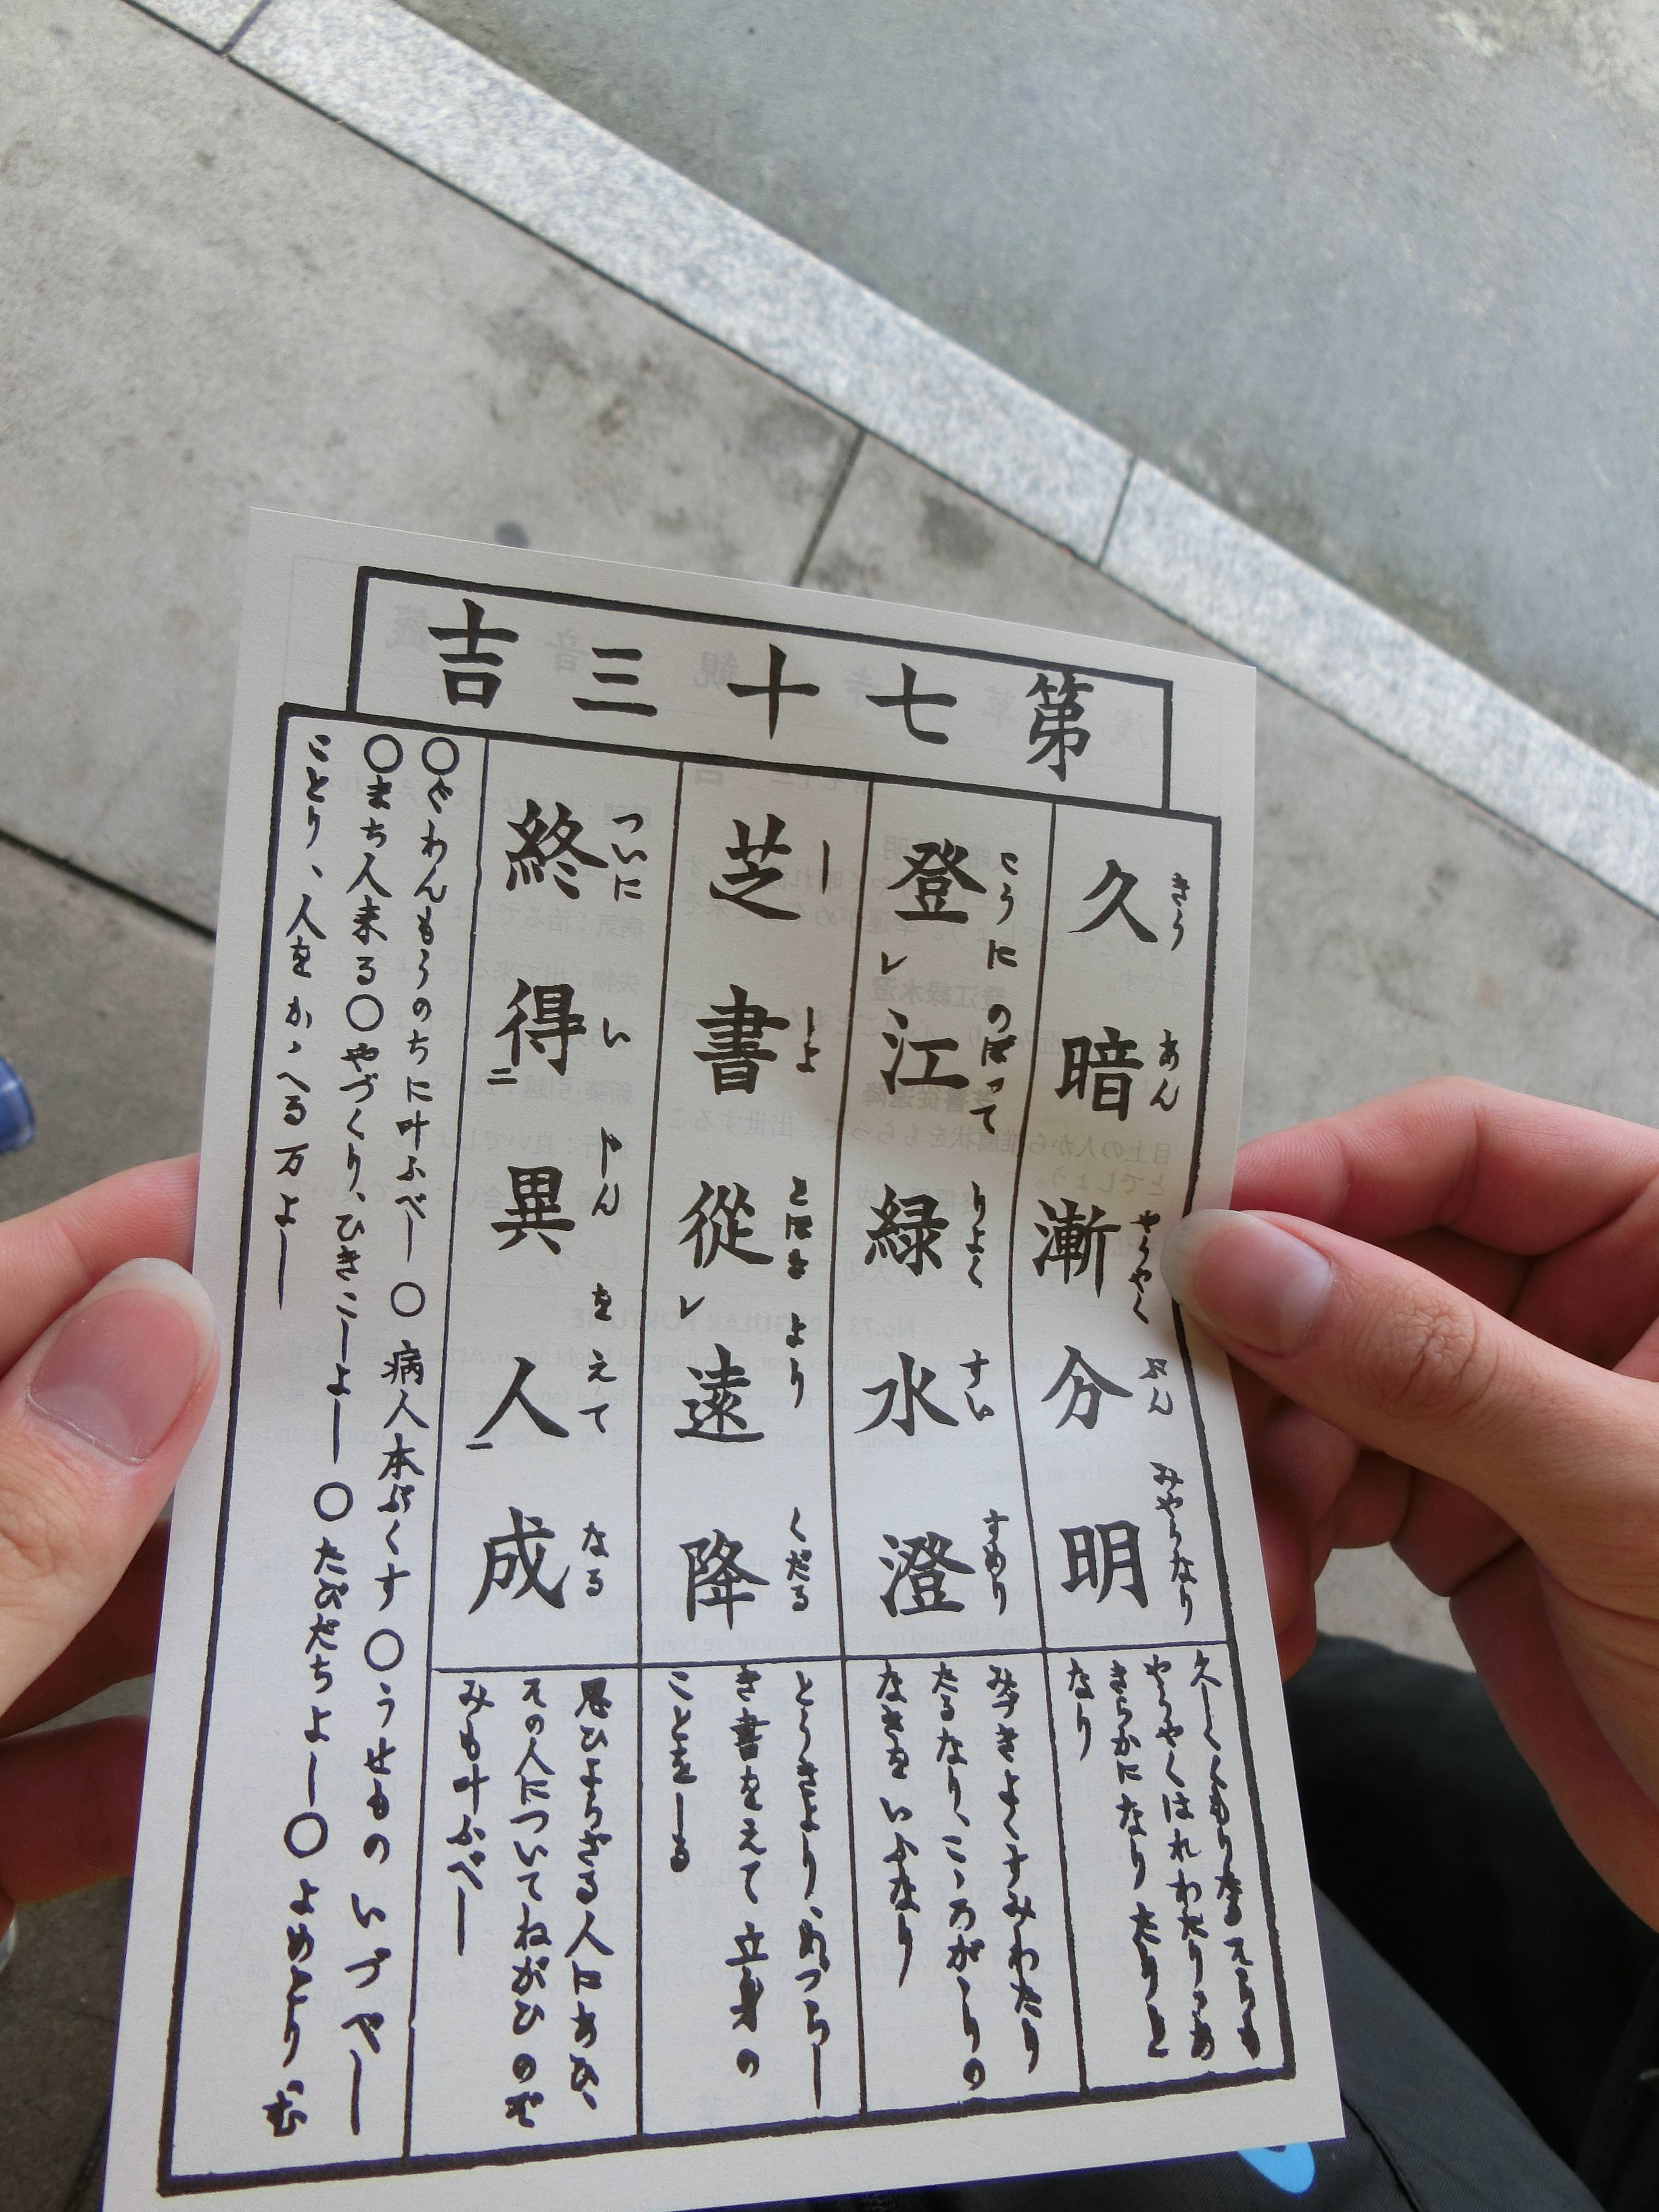 第七十三吉
久暗漸分明
きう あん やうやく ぶん みやうなり
登レ江緑水澄
こうに のぼつて りよく すい すめり
芝書從レ遠降
しよ とほきより くだる
終得二異人一成
ついに い じんをえて なる
なり
みづきよくすみわたり
たるなり、こゝろがゝりの
なきをいふなり
とうきより、めづらし
き書をえて立身の
ことをしる
思ひよらざる人にあひ、
その人についてねがひのぞ
みも叶ふべし
○ぐわんもうのちに叶ふべし○病人本ぶくす○うせものいづべし
○まち人来る○やづくり、ひきこしよし○たびだちよし○よめとり、む
ことり、人をかゝへる万よし